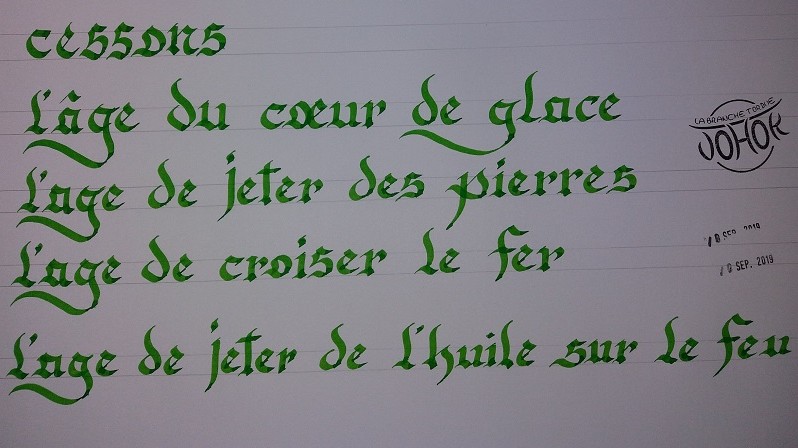 cessons
L'âge du cœur de glace
L'age de jeter des pierres
L'age de croiser le fer
L'age de jeter de l'huile sur le feu
LA BRANCHE TORDUE
JOHOK
SEP. 2019
SEP. 2019